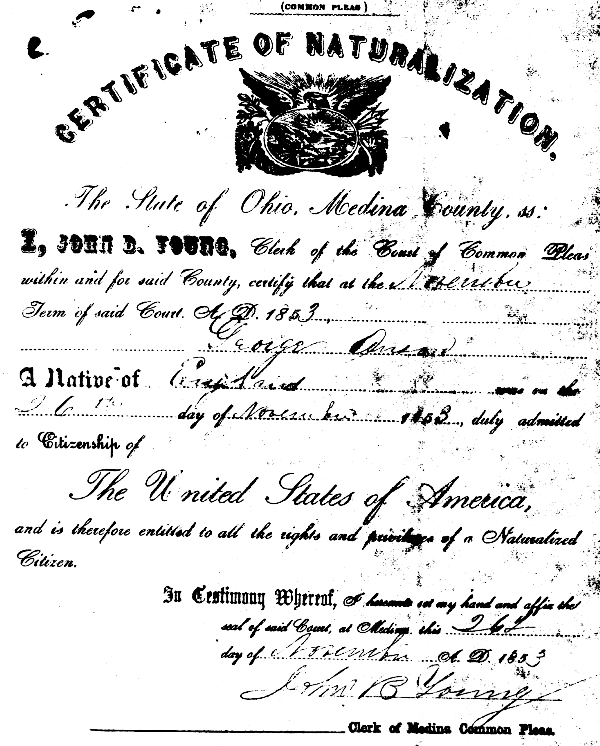 (COMMON PLEAS)
CERTIFICATE OF NATURALIZATION.
The State of Ohio, Medina County, ss:
I, JOHN B. YOUNG, Clerk of the Court of Common Pleas
within and for said County, certify that at the November
Term of said Court. A. D. 1853,
George
A Native of England was on the
26th day of November 1853, duly admitted
to Citizenship of
The United States of America,
and is therefore entitled to all the rights and privileges of a Naturalized
Citizen.
In Testimony Whereof, I hereunto set my hand and affix the
seal of said Court, at Medina, this 26th
day of November A. D. 1853
John B Young
Clerk of Medina Common Pleas.